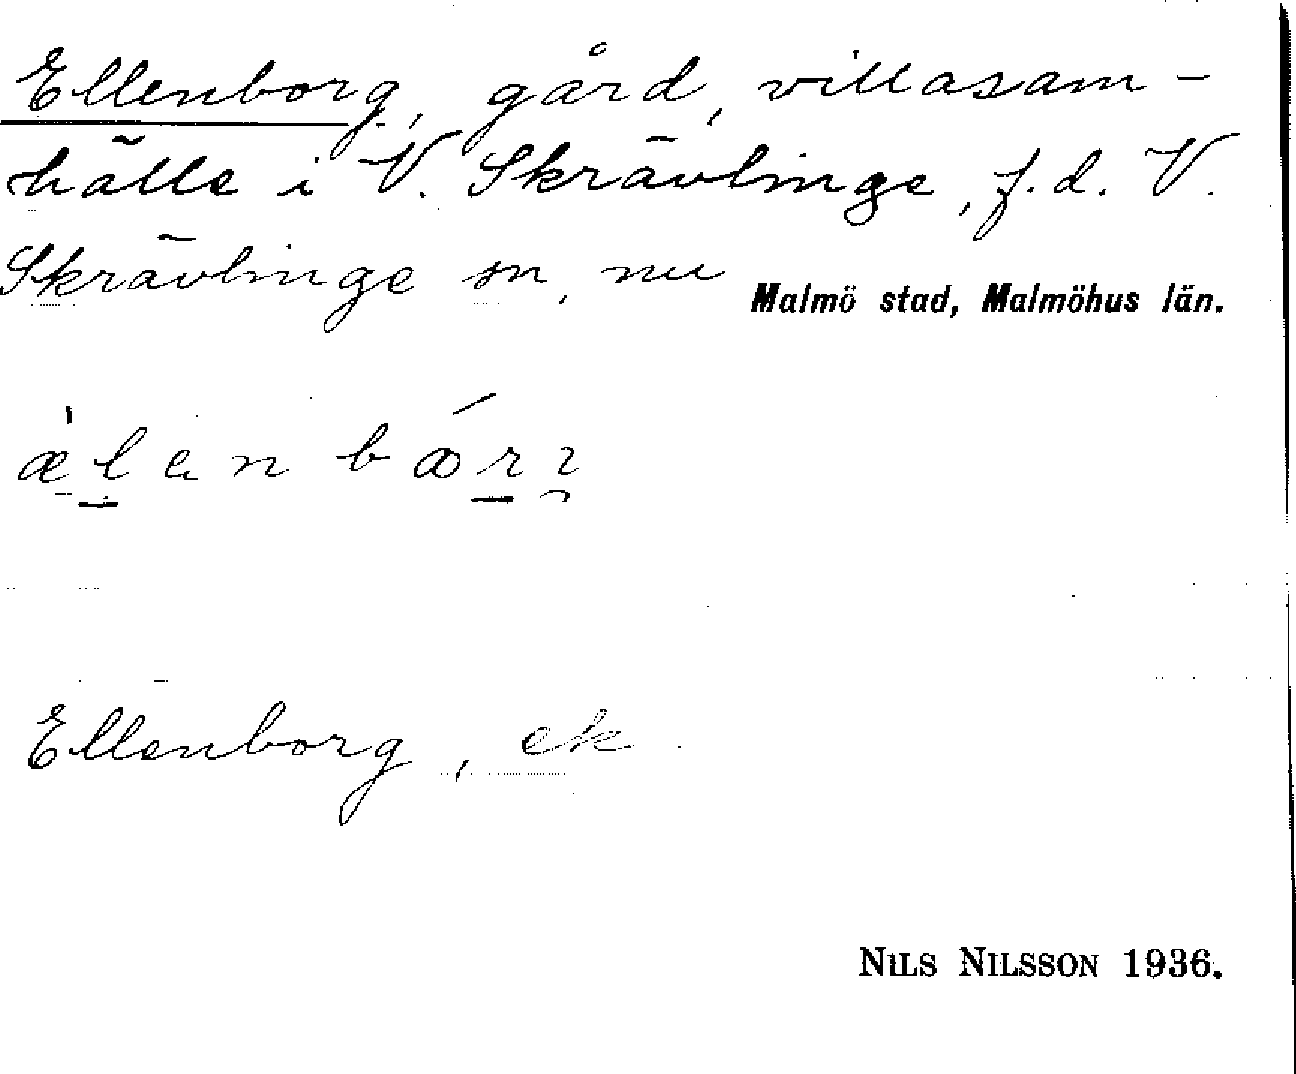 Ellenborg, gård, villasam-
hälle i V. Skrävlinge, f.d. V.
Skrävlinge sn, nu Malmö stad, Malmöhus län.
æ̀lenbǽrꝛ
Ellenborg, ek.
NILS NILSSON 1936.